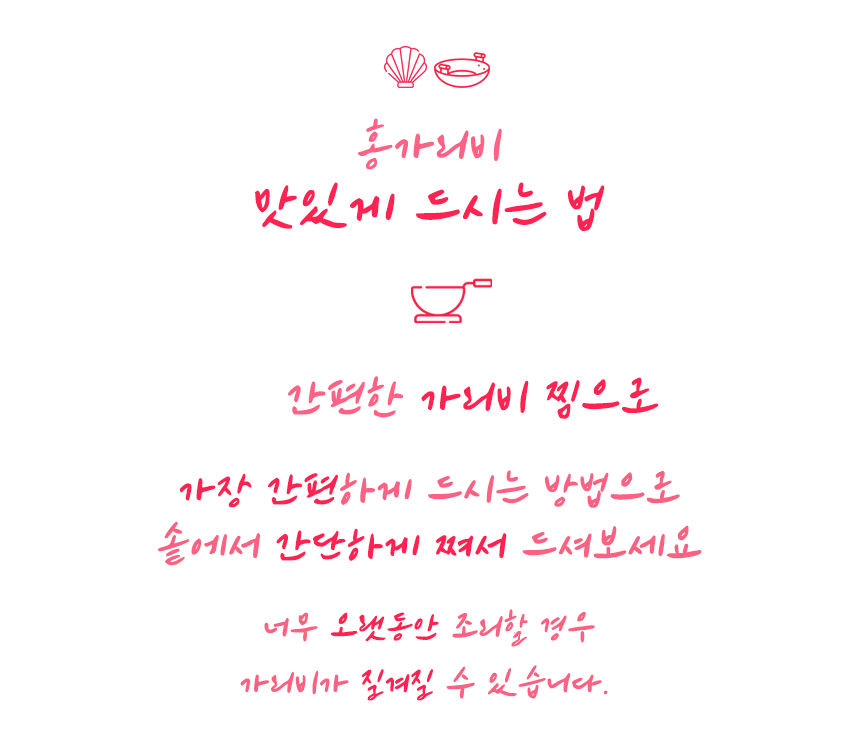 홍가리비
맛있게 드시는 법
간편한 가리비 찜으로
가장 간편하게 드시는 방법으로
솥에서 간단하게 쪄서 드셔보세요
너무 오랫동안 조리할 경우
가리비가 질겨질 수 있습니다.